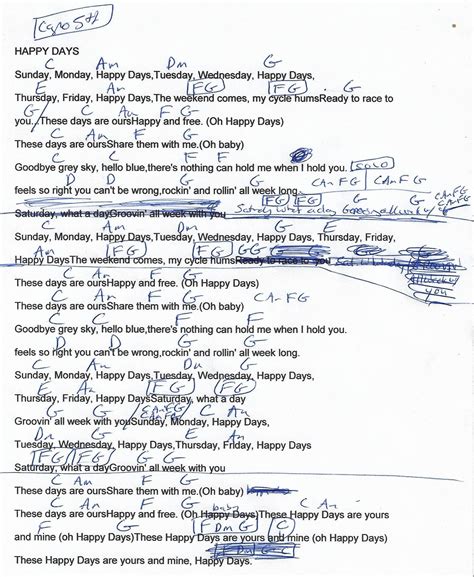 Capo 5th
HAPPY DAYS
C Am Dm G
Sunday, Monday, Happy Days,Tuesday, Wednesday, Happy Days,
E Am FG FG
Thursday, Friday, Happy Days,The weekend comes, my cycle humsReady to race to
C Am F G
you...These days are oursHappy and free. (Oh Happy Days)
C Am F G
These days are oursShare them with me.(Oh baby)
C F SOLO
Goodbye grey sky, hello blue,there's nothing can hold me when I hold you.
D D G G CAmFG CAmFG
feels so right you can't be wrong,rockin' and rollin' all week long.
FG FG G CAmFG
Saturday, what a dayGroovin' all week with you
C Am Dm G E
Sunday, Monday, Happy Days,Tuesday, Wednesday, Happy Days, Thursday, Friday,
Am FG FG GG
Happy DaysThe weekend comes, my cycle humsReady to race to you
C Am F G
These days are oursHappy and free. (Oh Happy Days)
you
C Am F G CAmFG
These days are oursShare them with me.(Oh baby)
C F
Goodbye grey sky, hello blue,there's nothing can hold me when I hold you.
D D G G
feels so right you can't be wrong,rockin' and rollin' all week long.
C Am Dm G
Sunday, Monday, Happy Days,Tuesday, Wednesday, Happy Days,
E Am FG FG
Thursday, Friday, Happy DaysSaturday, what a day
G C Am
Groovin' all week with youSunday, Monday, Happy Days
Dm G E Am
Tuesday, Wednesday, Happy Days,Thursday, Friday, Happy Days
FG FG G
Saturday, what a dayGroovin' all week with you
C Am F G
These days are oursShare them with me.(Oh baby)
C Am F G baby C Am
These days are oursHappy and free. (Oh Happy Days)These Happy Days are yours
F G F Dm G C
and mine (oh Happy Days)These Happy Days are yours and mine (oh Happy Days)
F Dm G C
These Happy Days are yours and mine, Happy Days.